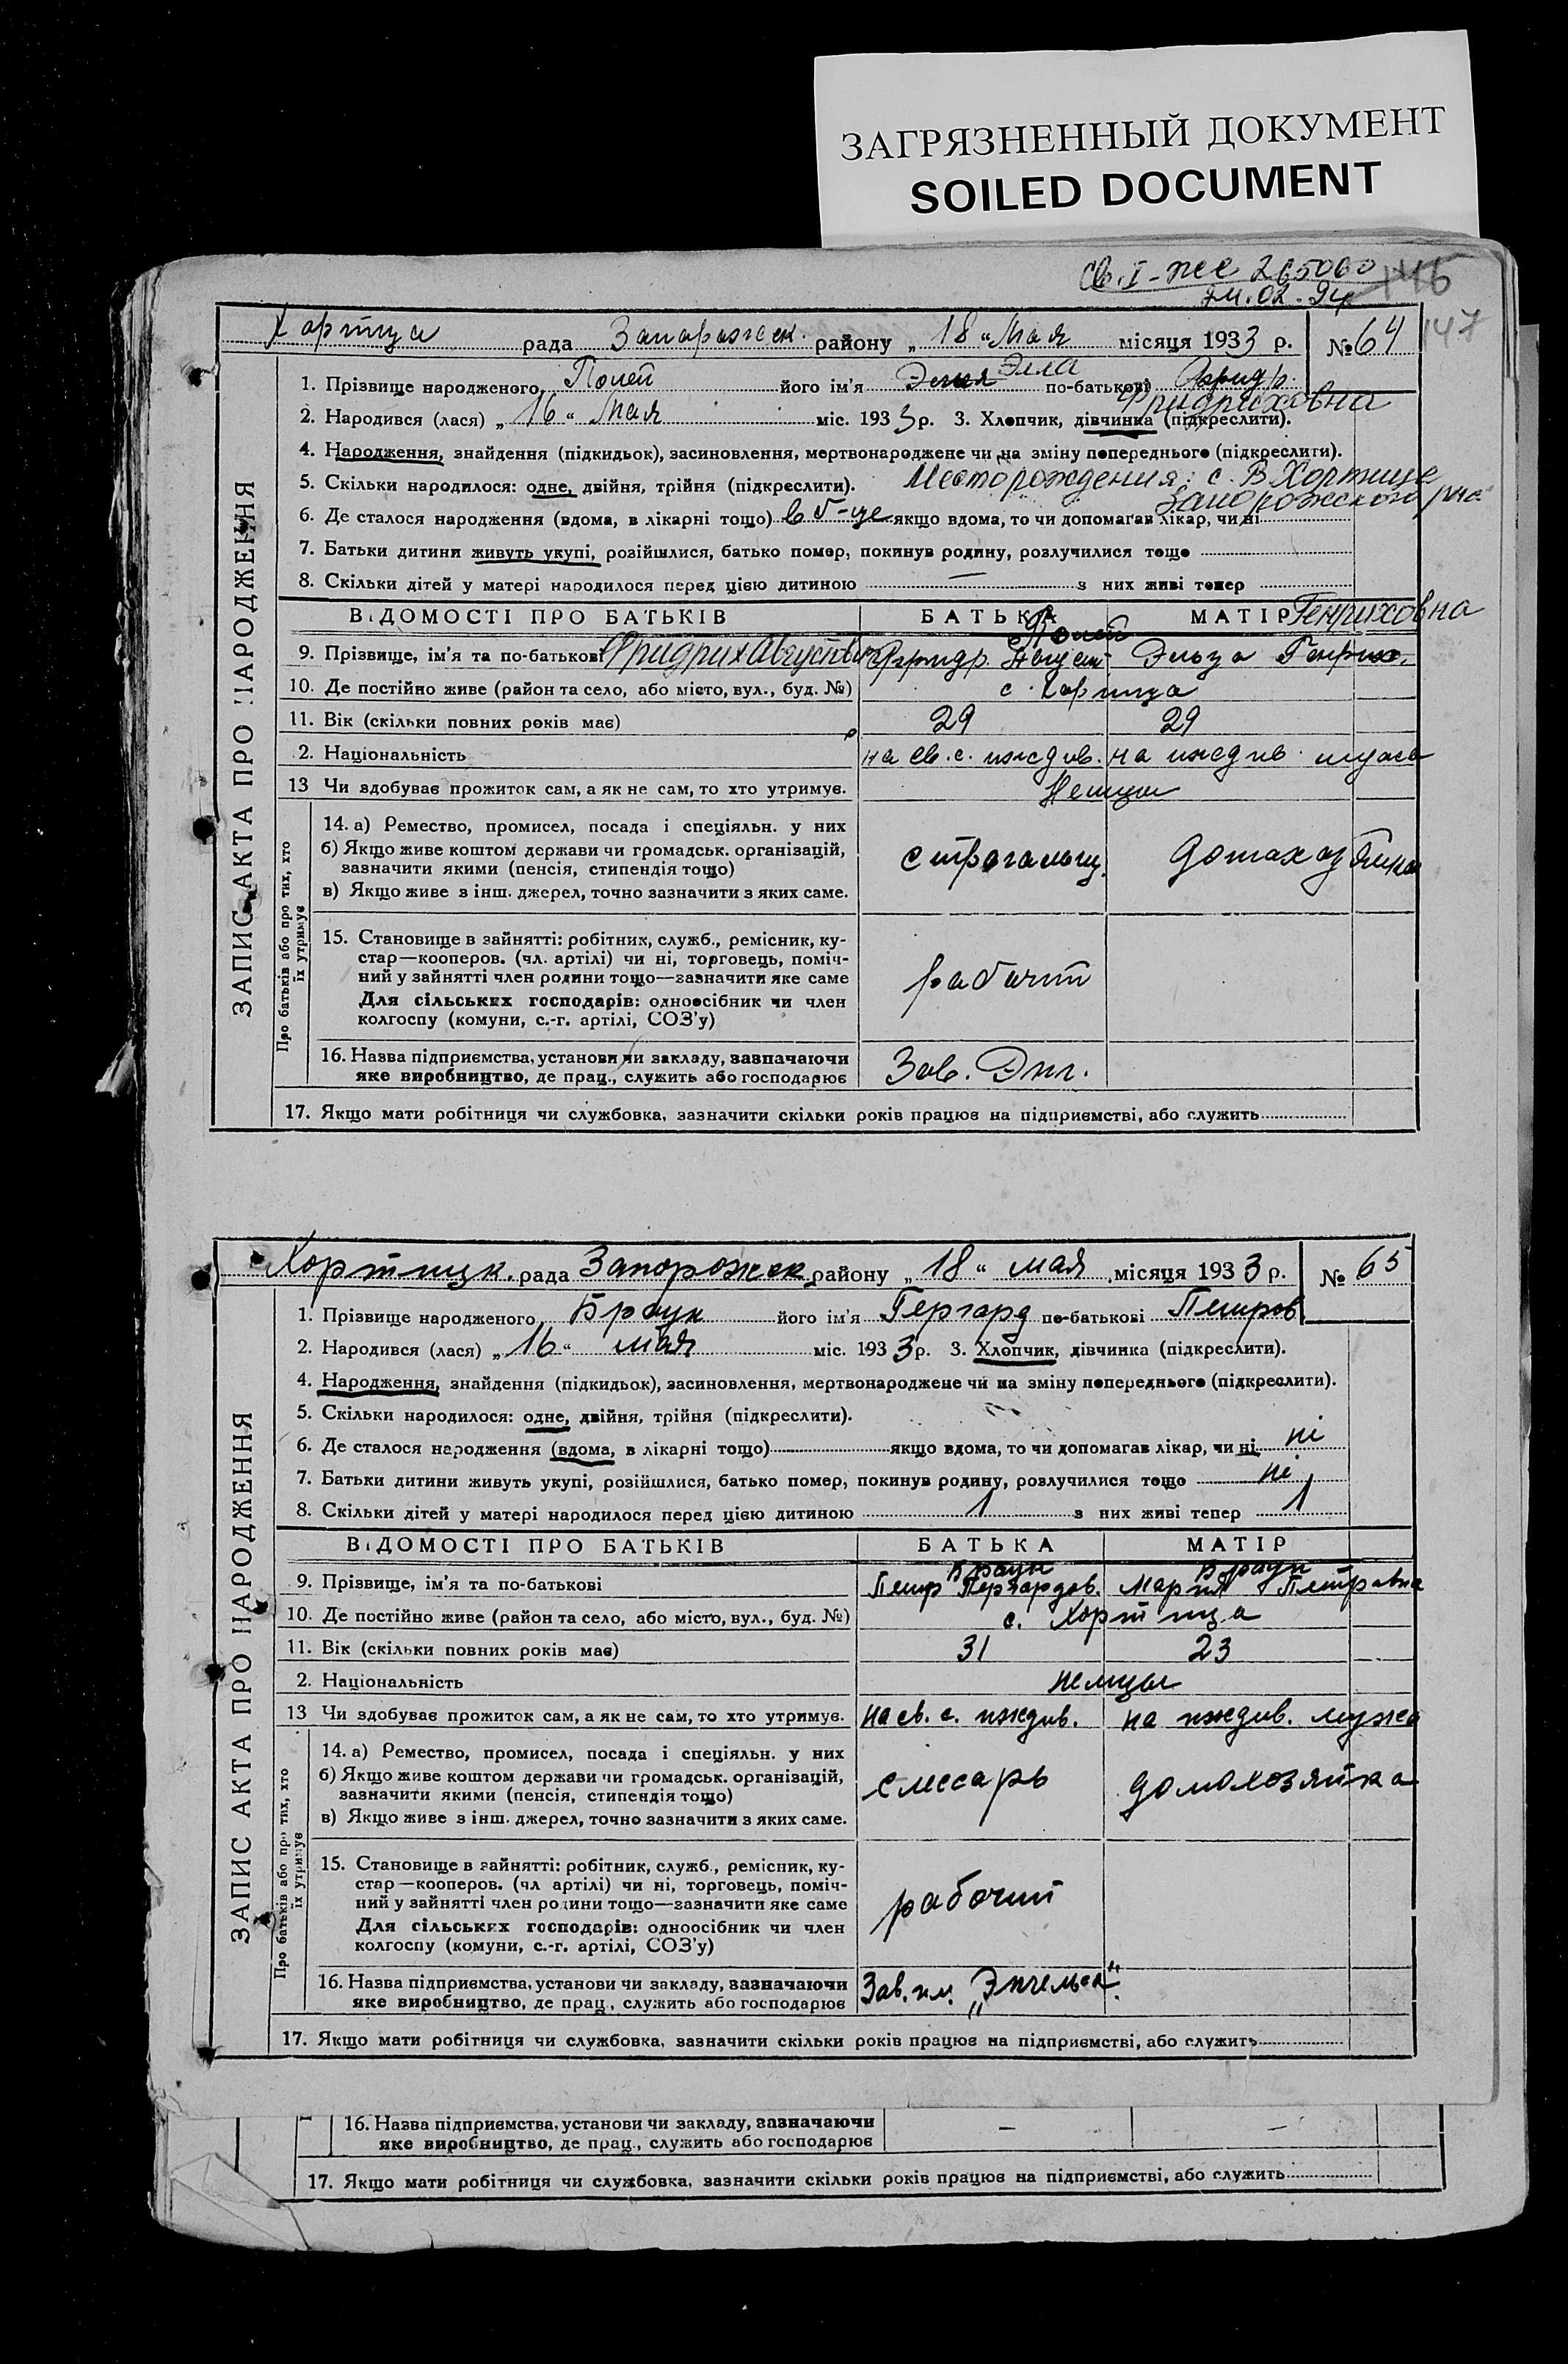 ЗАГРЯЗНЕННЫЙ ДОКУМЕНТ
SOILED DOCUMENT
св. I-же 265060
147
Хортица рада Запорожск. району „18“ Мая місяця 1933 р. № 64
1. Прізвище народженого Полей його ім'я Элла по-батькові Фридр.
Фридриховна
2. Народився (лася) „16“ Мая міс. 1933 р. 3. Хлопчик, дівчинка (підкреслити).
4. Народження, знайдення (підкидьок), засиновлення, мертвонароджене чи на зміну попереднього (підкреслити).
5. Скільки народилося: одне, двійня, трійня (підкреслити). Место рождения: с. В Хортица
Запорожского р-на
6. Де сталося народження (вдома, в лікарні тощо) в б-це якщо вдома, то чи допомагав лікар, чи ні
7. Батьки дитини живуть укупі, розійшлися, батько помер, покинув родину, розлучилися тощо
8. Скільки дітей у матері народилося перед цією дитиною — з них живі тепер
ВІДОМОСТІ ПРО БАТЬКІВ БАТЬКА МАТІР Генриховна
Полей
9. Прізвище, ім'я та по-батькові Фридрих Августович Фридр. Август Эльза Генрих.
10. Де постійно живе (район та село, або місто, вул., буд. №) с. Хортица
11. Вік (скільки повних років має) 29 29
2. Національність на св. с. иждив. на иждив. мужа
13 Чи здобуває прожиток сам, а як не сам, то хто утримує. Немцы
14. а) Ремество, промисел, посада і спеціяльн. у них
б) Якщо живе коштом держави чи громадськ. організацій,
зазначити якими (пенсія, стипендія тощо)
в) Якщо живе з інш. джерел, точно зазначити з яких саме.
строгальщ. домахозяйка
15. Становище в зайнятті: робітник, служб., ремісник, ку-
стар—кооперов. (чл. артілі) чи ні, торговець, поміч-
ний у зайнятті член родини тощо—зазначити яке саме
Для сільських господарів: одноосібник чи член
колгоспу (комуни, с.-г. артілі, СОЗ'у)
рабочий
16. Назва підприємства, установи чи закладу, зазначаючи
яке виробництво, де прац., служить або господарює
Зав. Энг.
17. Якщо мати робітниця чи службовка, зазначити скільки років працює на підприємстві, або служить
ЗАПИС АКТА ПРО НАРОДЖЕННЯ
Про батьків або про тих, хто
їх утримує
Хортицк. рада Запорожск. району „18“ мая місяця 1933 р. № 65
1. Прізвище народженого Браун його ім'я Гергард по-батькові Петров
2. Народився (лася) „16“ мая міс. 1933 р. 3. Хлопчик, дівчинка (підкреслити).
4. Народження, знайдення (підкидьок), засиновлення, мертвонароджене чи на зміну попереднього (підкреслити).
5. Скільки народилося: одне, двійня, трійня (підкреслити).
6. Де сталося народження (вдома, в лікарні тощо) якщо вдома, то чи допомагав лікар, чи ні ні
7. Батьки дитини живуть укупі, розійшлися, батько помер, покинув родину, розлучилися тощо ні
8. Скільки дітей у матері народилося перед цією дитиною 1 з них живі тепер 1
ВІДОМОСТІ ПРО БАТЬКІВ БАТЬКА МАТІР
Браун Браун
9. Прізвище, ім'я та по-батькові Петр Гергардов. Мария Петровна
10. Де постійно живе (район та село, або місто, вул., буд. №) с. Хортица
11. Вік (скільки повних років має) 31 23
2. Національність немцы
13 Чи здобуває прожиток сам, а як не сам, то хто утримує. на св. с. иждив. на иждив. мужа
14. а) Ремество, промисел, посада і спеціяльн. у них
б) Якщо живе коштом держави чи громадськ. організацій,
зазначити якими (пенсія, стипендія тощо)
в) Якщо живе з інш. джерел, точно зазначити з яких саме.
слесарь домохозяйка
15. Становище в зайнятті: робітник, служб., ремісник, ку-
стар—кооперов. (чл артілі) чи ні, торговець, поміч-
ний у зайнятті член родини тощо—зазначити яке саме
Для сільських господарів: одноосібник чи член
колгоспу (комуни, с.-г. артілі, СОЗ'у)
рабочий
16. Назва підприємства, установи чи закладу, зазначаючи
яке виробництво, де прац., служить або господарює
Зав. им. „Энгельса“.
17. Якщо мати робітниця чи службовка, зазначити скільки років працює на підприємстві, або служить
ЗАПИС АКТА ПРО НАРОДЖЕННЯ
Про батьків або про тих, хто
їх утримує
16. Назва підприємства, установи чи закладу, зазначаючи
яке виробництво, де прац., служить або господарює — —
17. Якщо мати робітниця чи службовка, зазначити скільки років працює на підприємстві, або служить